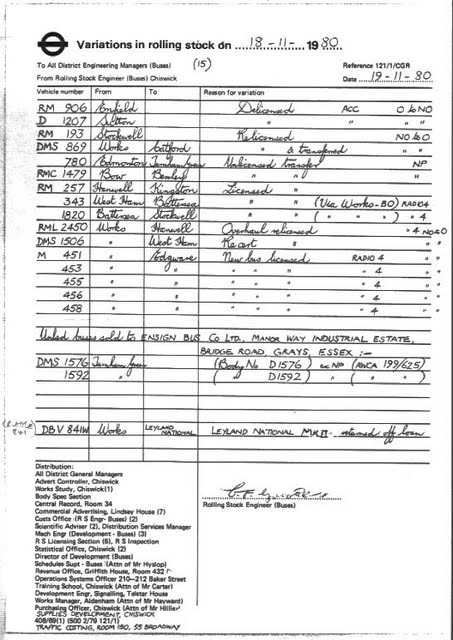 Variations in rolling stock on 18-11- 1980
To All District Engineering Managers (Buses) (15) Reference 121/1/CGR
From Rolling Stock Engineer (Buses) Chiswick Date 19-11-80
Vehicle number From To Reason for variation
RM 906 Enfield Delicensed ACC O to NO
D 1207 Sutton " " "
RM 193 Stockwell Relicensed NO to O
DMS 869 Works Catford " & transferred " "
780 Edmonton Turnham Green Unlicensed transfer NP
RMC 1479 Bow Bexley " " "
RM 257 Hanwell Kingston Licensed "
343 West Ham Battersea " " (Via Works-BO) RADIO 4
1820 Battersea Stockwell " " ( " " " ) " 4
RML 2450 Works Hanwell Overhaul relicensed " 4 NO to O
DMS 1506 " West Ham Recert " " "
M 451 " Edgware New bus licensed RADIO 4 " "
453 " " " " " " 4 " "
455 " " " " " " 4 " "
456 " " " " " " 4 " "
458 " " " " " " 4 " "
Unlsd buses sold to ENSIGN BUS Co LTD, MANOR WAY INDUSTRIAL ESTATE,
BRIDGE ROAD, GRAYS, ESSEX :-
DMS 1576 Turnham Green (Body No D1576) ex NP (AWCA 199/625)
1592 " ( " D1592) " ( " " )
841
DBV 841W Works LEYLAND NATIONAL LEYLAND NATIONAL MK II returned off loan
Distribution:
All District General Managers
Advert Controller, Chiswick
Works Study, Chiswick(1)
Body Spec Section
Central Record, Room 34
Commercial Advertising, Lindsay House (7)
Costs Office (R S Engr- Buses) (2)
Scientific Adviser (2), Distribution Services Manager
Mech Engr (Development - Buses) (3)
R S Licensing Section (6), R S Inspection
Statistical Office, Chiswick (2)
Director of Development (Buses)
Schedules Supt - Buses (Attn of Mr Hyslop)
Revenue Office, Griffith House, Room 432
Operations Systems Officer 210-212 Baker Street
Training School, Chiswick (Attn of Mr Carter)
Development Engr, Signalling, Telstar House
Works Manager, Aldenham (Attn of Mr Hayward)
Purchasing Officer, Chiswick (Attn of Mr Hillier)
SUPPLIES DEVELOPMENT, CHISWICK
408/69(1) (500 2/79 121/1)
TRAFFIC COSTING, ROOM 150, 55 BROADWAY
Rolling Stock Engineer (Buses)